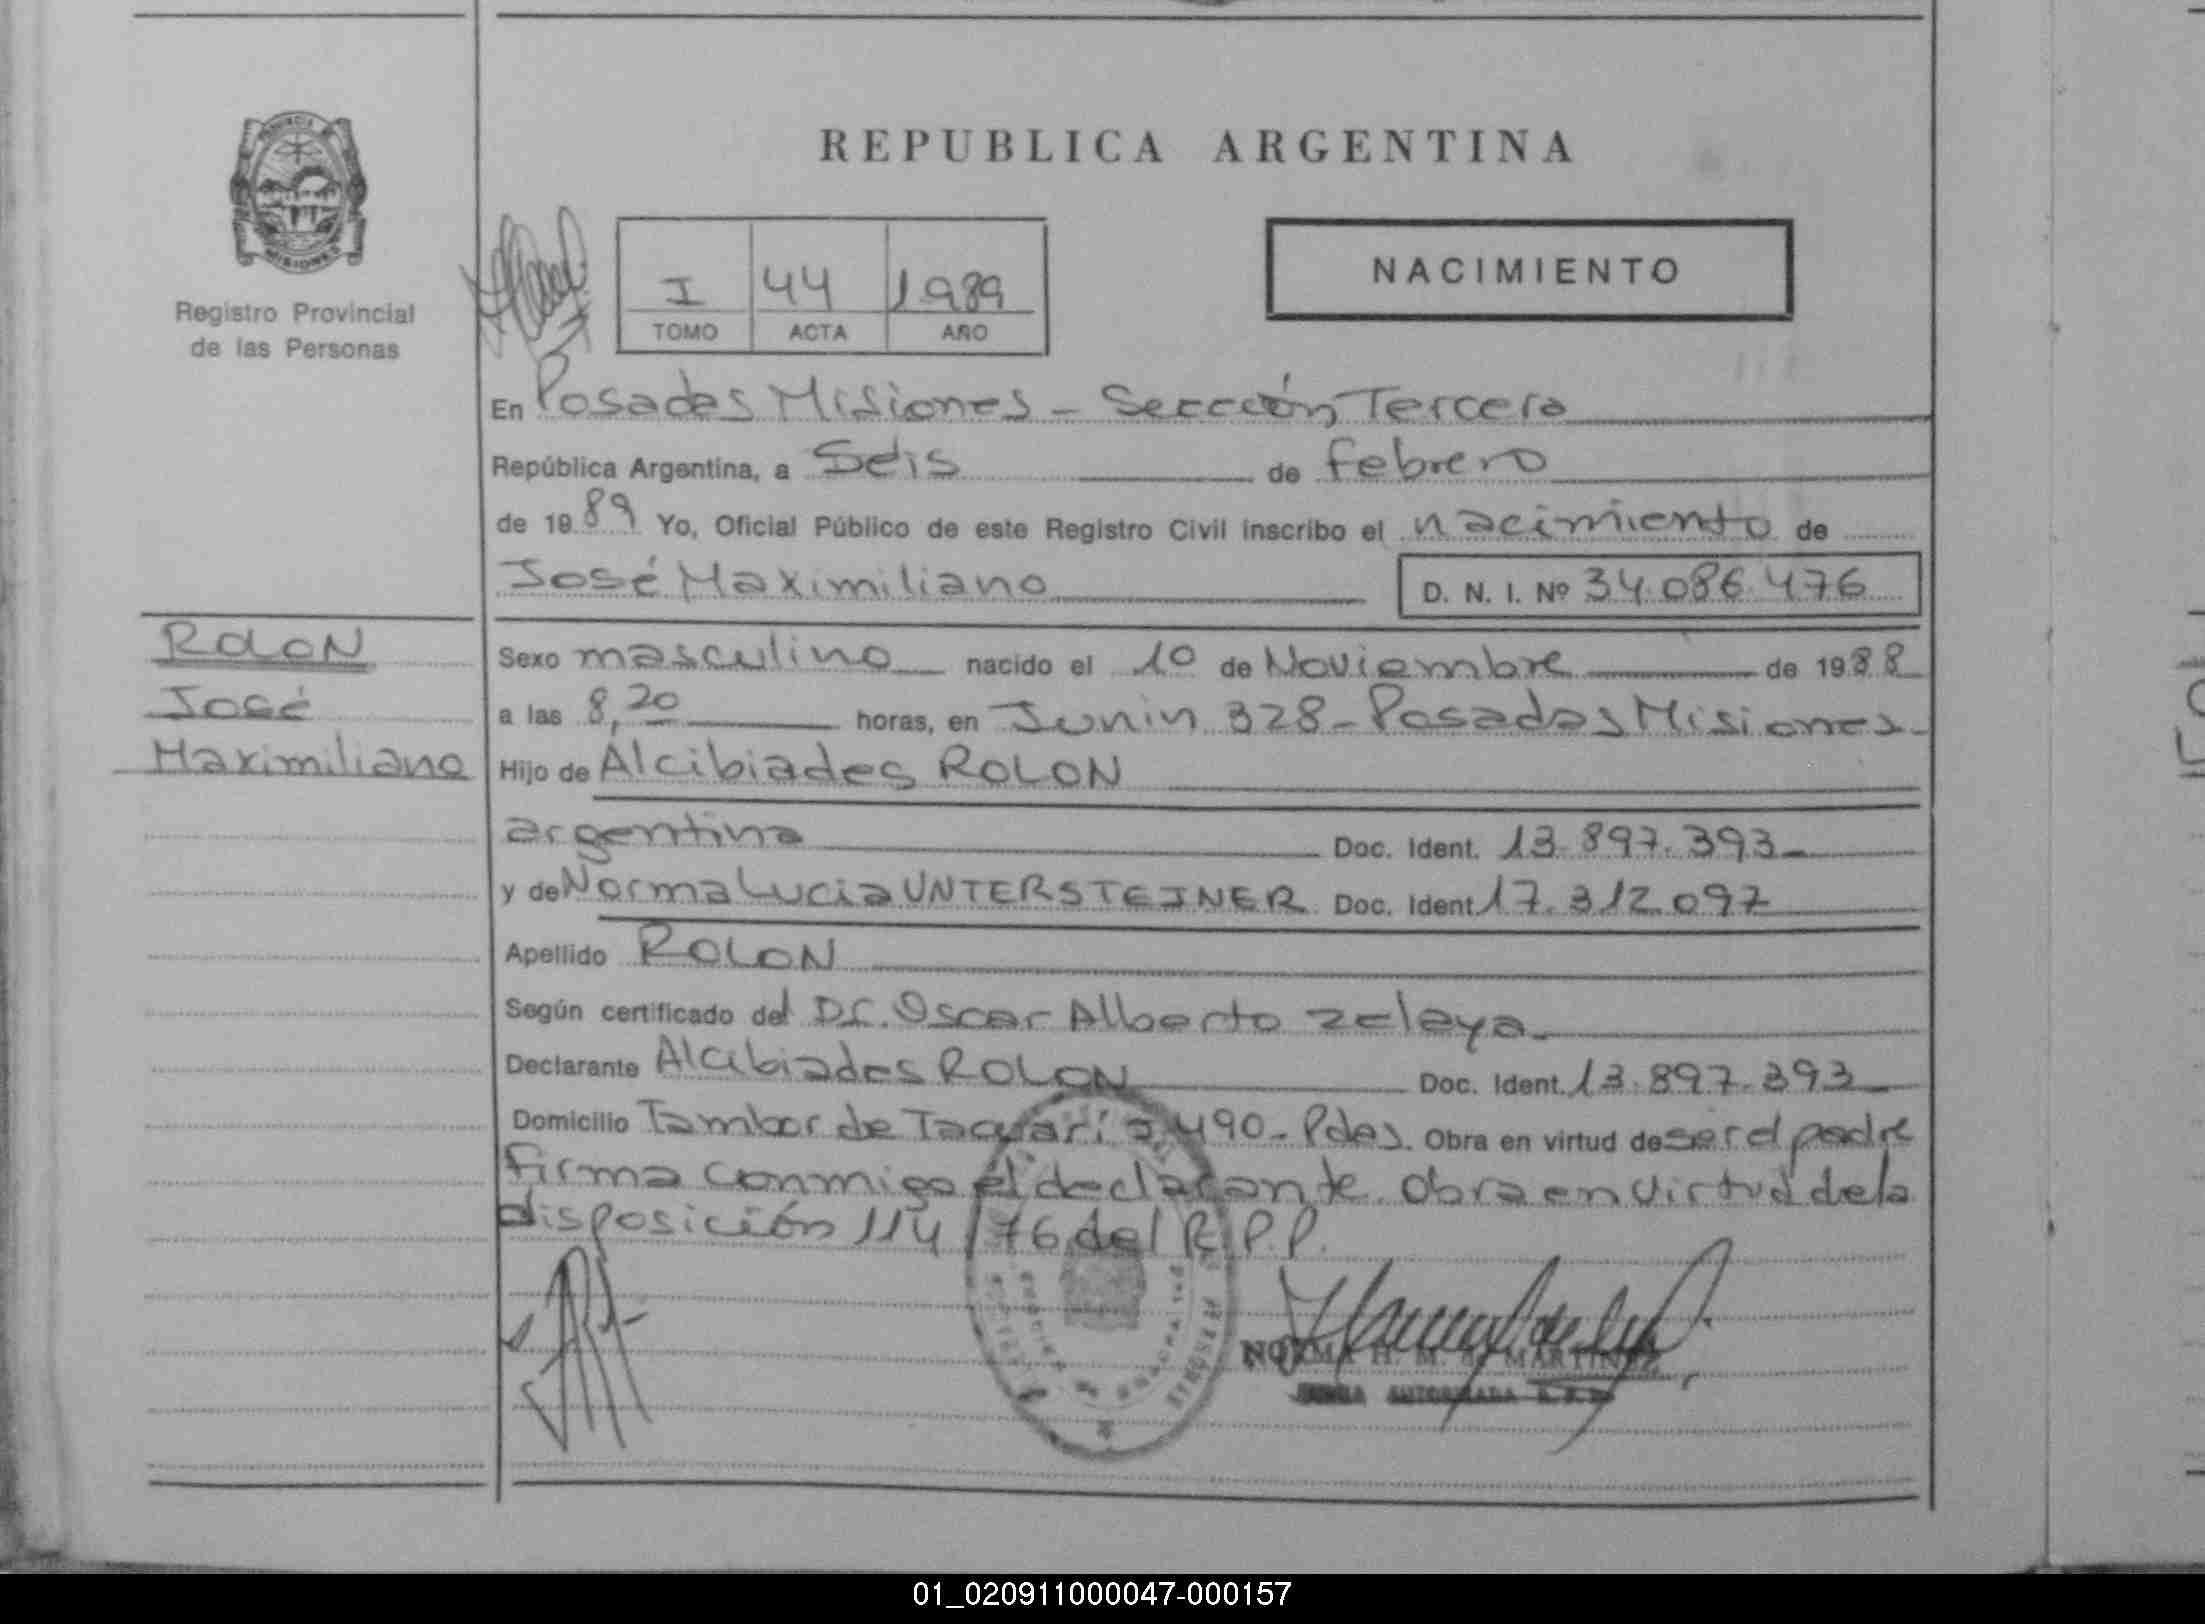 REPUBLICA ARGENTINA
PROVINCIA
MISIONES
Registro Provincial
de las Personas
I 44 1989
TOMO ACTA AÑO
NACIMIENTO
En Posadas Misiones - Sección Tercera
República Argentina, a Seis de Febrero
de 1989 Yo, Oficial Público de este Registro Civil inscribo el nacimiento de
José Maximiliano D. N. I. Nº 34.086.476
ROLON
José
Maximiliano
Sexo masculino nacido el 10 de Noviembre de 1988
a las 8,20 horas, en Junin 328 - Posadas Misiones -
Hijo de Alcibiades ROLON
argentina Doc. Ident. 13.897.393 -
y de Norma Lucia UNTERSTEINER Doc. Ident 17.312.097
Apellido ROLON
Según certificado del Dr. Oscar Alberto Zelaya
Declarante Alcibiades ROLON Doc. Ident. 13.897.393
Domicilio Tambor de Tacuari 490 - Pdas. Obra en virtud de ser el padre
firma conmigo el declarante. Obra en virtud de la
disposición 114/76 del R.P.P.
NORMA H. M. de MARTINEZ
FIRMA AUTORIZADA R.P.P.
01_020911000047-000157